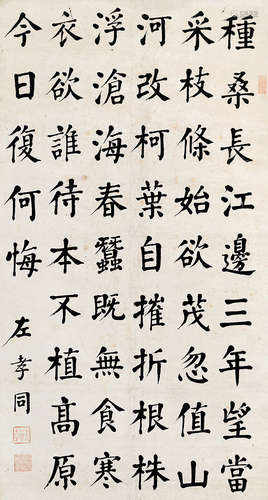 種桑長江邊三年望當
采枝條始欲茂忽值山
河改柯葉自摧折根株
浮滄海春蠶既無食寒
衣欲誰待本不植高原
今日復何悔
左孝同